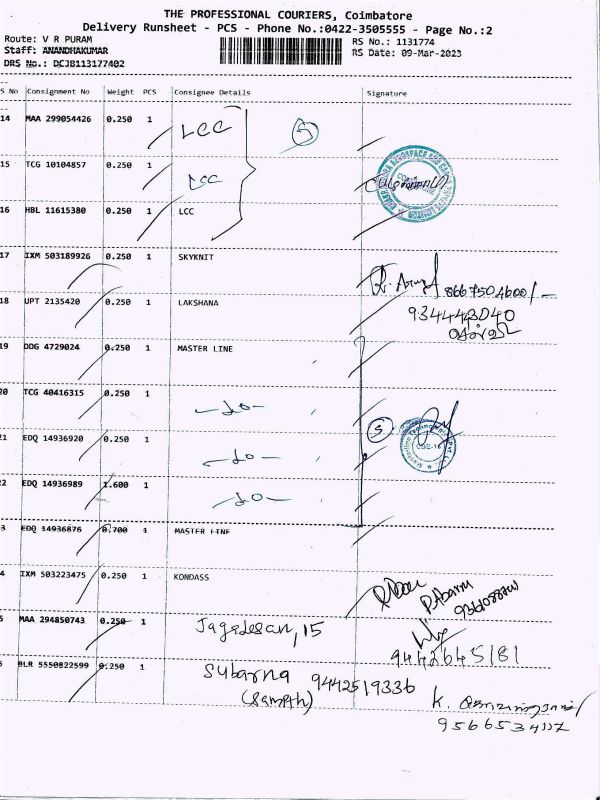 THE PROFESSIONAL COURIERS, Coimbatore
Delivery Runsheet - PCS - Phone No.:0422-3505555 - Page No.:2
Route: V R PURAM
RS No.: 1131774
Staff: ANANDHAKUMAR
RS Date: 09-Mar-2023
DRS No.: DCJB113177402
S No Consignment No Weight PCS Consignee Details Signature
14 MAA 299054426 0.250 1 LCC 5
15 TCG 10104857 0.250 1 LCC
16 HBL 11615380 0.250 1 LCC
17 IXM 503189926 0.250 1 SKYKNIT
8667504600/-
18 UPT 2135420 0.250 1 LAKSHANA
9344443040
19 DDG 4729024 0.250 1 MASTER LINE
20 TCG 40416315 0.250 1 -do-
5
21 EDQ 14936920 0.250 1 -do-
CBE-14
22 EDQ 14936989 1.600 1 -do-
3 EDQ 14936876 0.700 1 MASTER LINE
4 IXM 503223475 0.250 1 KONDASS
5 MAA 294850743 0.250 1 Jagadesan, 15
9442645181
6 BLR 5550822599 0.250 1 Subarna 9442519336
(Sampth)